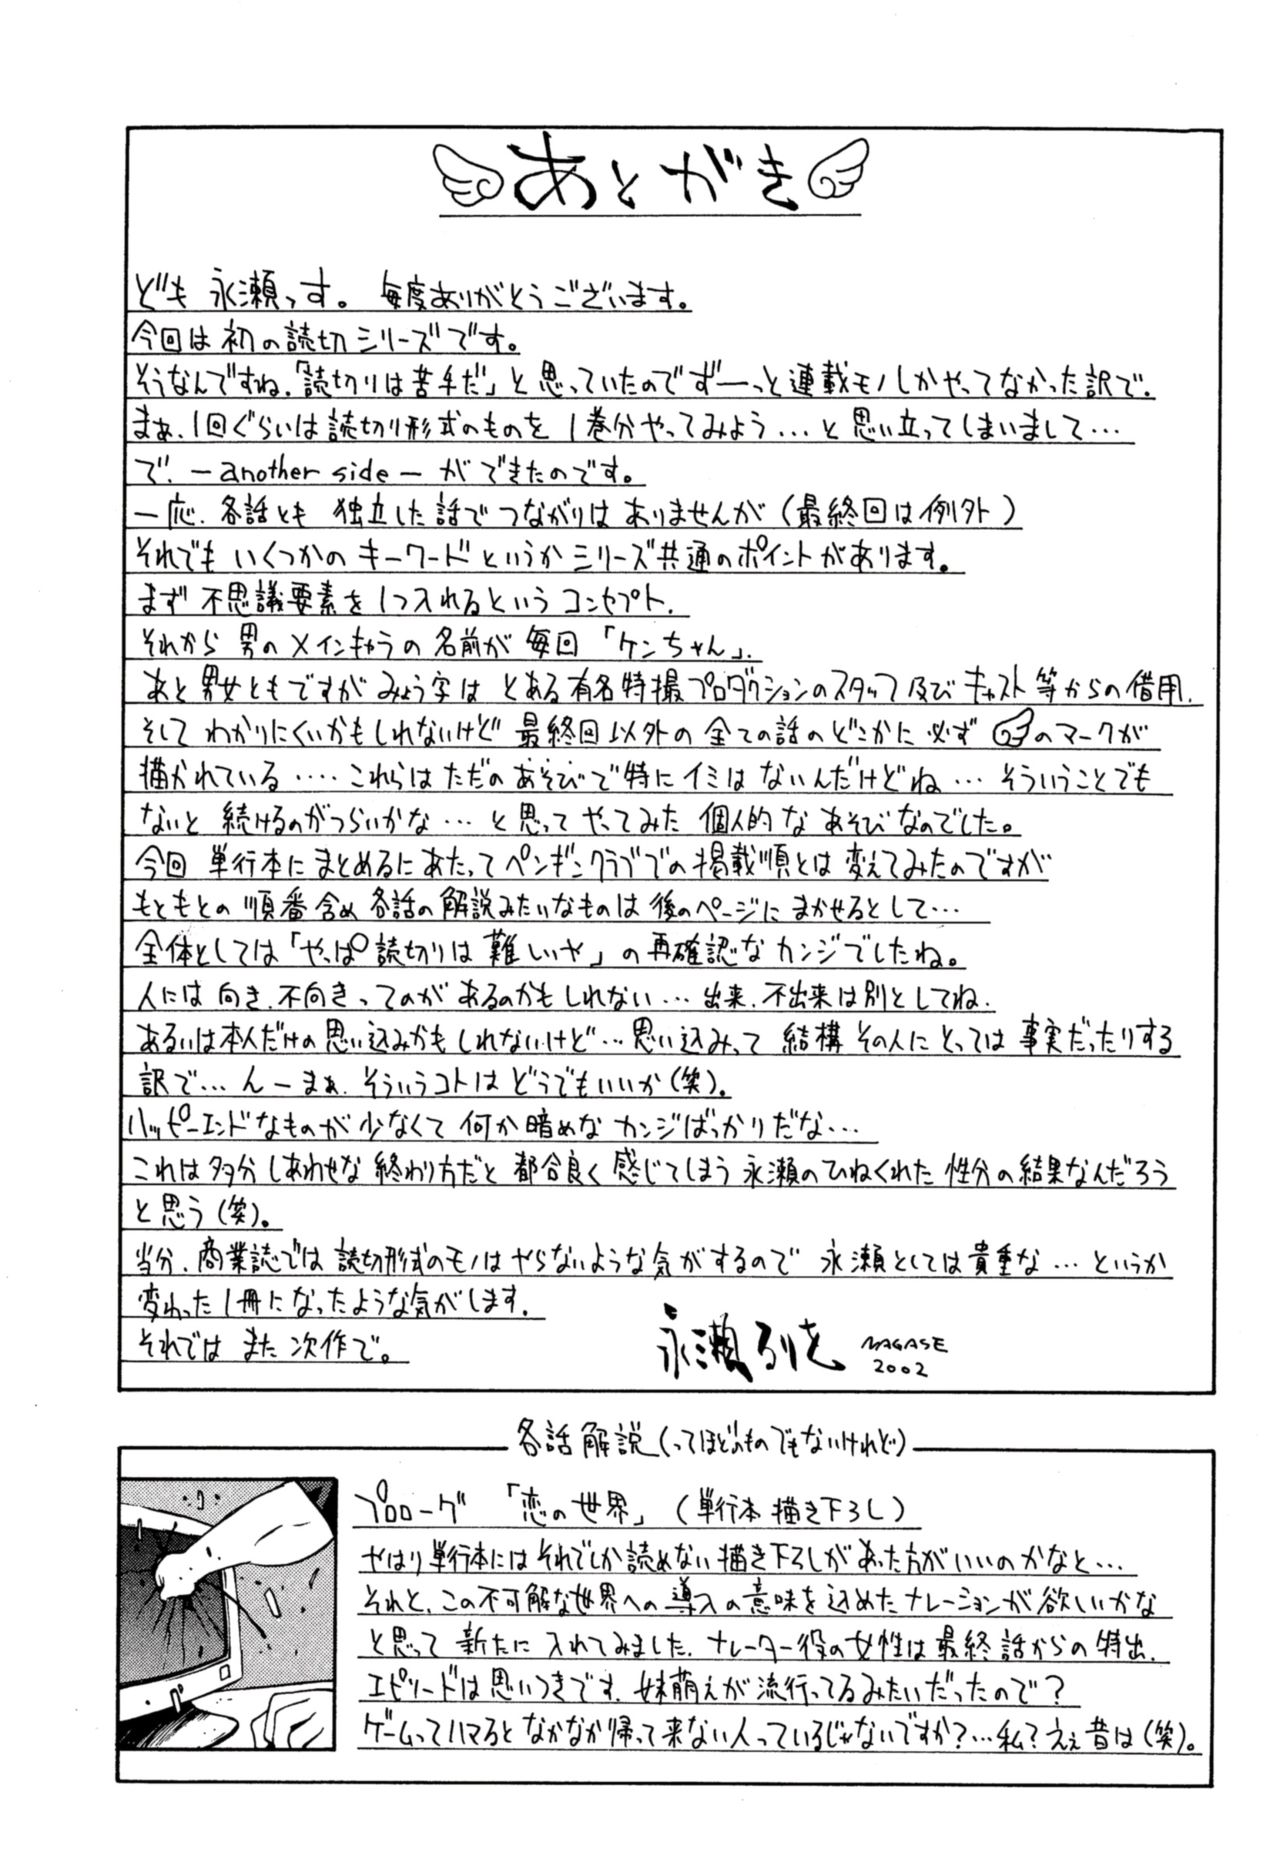 あとがき
ども 永瀬っす。 毎度ありがとうございます。
今回は初の読切シリーズです。
そうなんですね、「読切りは苦手だ」と思っていたのでずーっと連載モノしかやってなかった訳で。
まぁ、1回ぐらいは読切り形式のものを1巻分やってみよう…と思い立ってしまいまして…
で、—another side—ができたのです。
一応、各話とも 独立した話でつながりはありませんが(最終回は例外)
それでもいくつかのキーワードというかシリーズ共通のポイントがあります。
まず不思議要素を1つ入れるというコンセプト。
それから男のメインキャラの名前が毎回「ケンちゃん」。
あと男女ともですがみょう字は とある有名特撮プロダクションのスタッフ及びキャスト等からの借用。
そして わかりにくいかもしれないけど 最終回以外の全ての話のどこかに必ず のマークが
描かれている……これらはただのあそびで特にイミはないんだけどね…そういうことでも
ないと 続けるのがつらいかな…と思ってやってみた 個人的なあそびなのでした。
今回 単行本にまとめるにあたってペンギンクラブでの掲載順とは変えてみたのですが
もともとの順番含め各話の解説みたいなものは後のページにまかせるとして…
全体としては「やっぱ読切りは難しいや」の再確認なカンジでしたね。
人には向き、不向きってのがあるのかもしれない…出来、不出来は別としてね。
あるいは本人だけの思い込みかもしれないけど…思い込みって 結構その人にとっては事実だったりする
訳で…んーまぁ、そういうコトはどうでもいいか(笑)。
ハッピーエンドなものが少なくて何か暗めなカンジばっかりだな…
これは多分しあわせな終わり方だと都合良く感じてしまう永瀬のひねくれた性分の結果なんだろう
と思う(笑)。
当分、商業誌では読切形式のモノはやらないような気がするので 永瀬としては貴重な…というか
変わった1冊になったような気がします。
それではまた次作で。
永瀬るりを NAGASE 2002
各話解説(ってほどのものでもないけれど)
プロローグ 「恋の世界」 (単行本描き下ろし)
やはり単行本にはそれでしか読めない描き下ろしがあった方がいいのかなと…
それと、この不可解な世界への導入の意味を込めたナレーションが欲しいかな
と思って 新たに入れてみました。ナレーター役の女性は最終話からの特出。
エピソードは思いつきです。妹萌えが流行ってるみたいだったので?
ゲームってハマるとなかなか帰って来ない人っているじゃないですか?…私?ええ昔は(笑)。